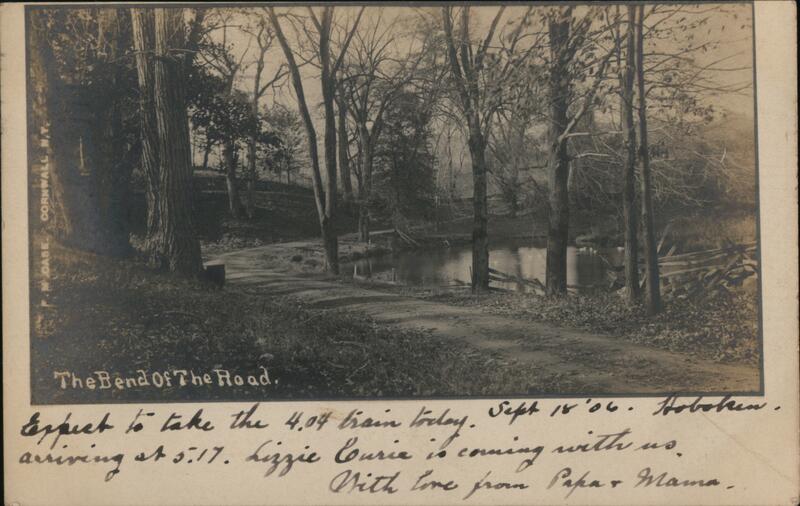 F. N. CASE. CORNWALL. N.Y.
The Bend Of The Road.
Expect to take the 4.04 train today. Sept 18 '06. Hoboken.
arriving at 5.17. Lizzie is coming with us.
With love from Papa + Mama.